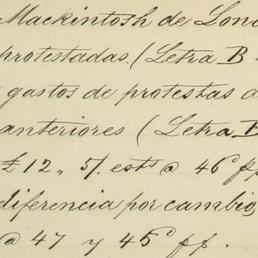 Mackintosh de Lond
protestadas. (Letra B
gastos de protestas d
anteriores (Letra B
£12,, 5/. ests @ 46
diferencia por cambio
@ 47 y 45